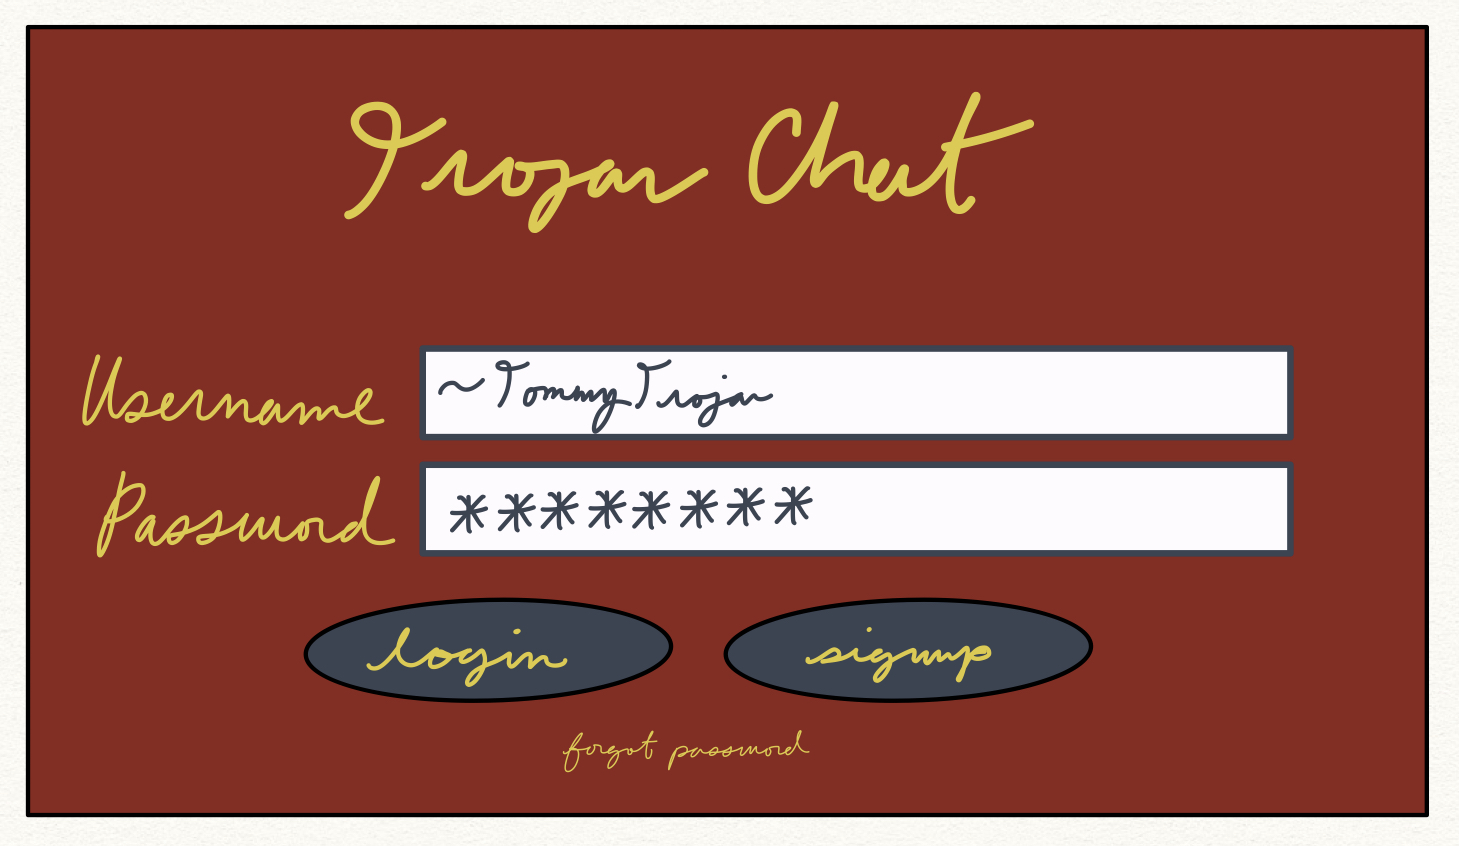 Trojan Chat
Username ~TommyTrojan
Password ********
login signup
forgot password